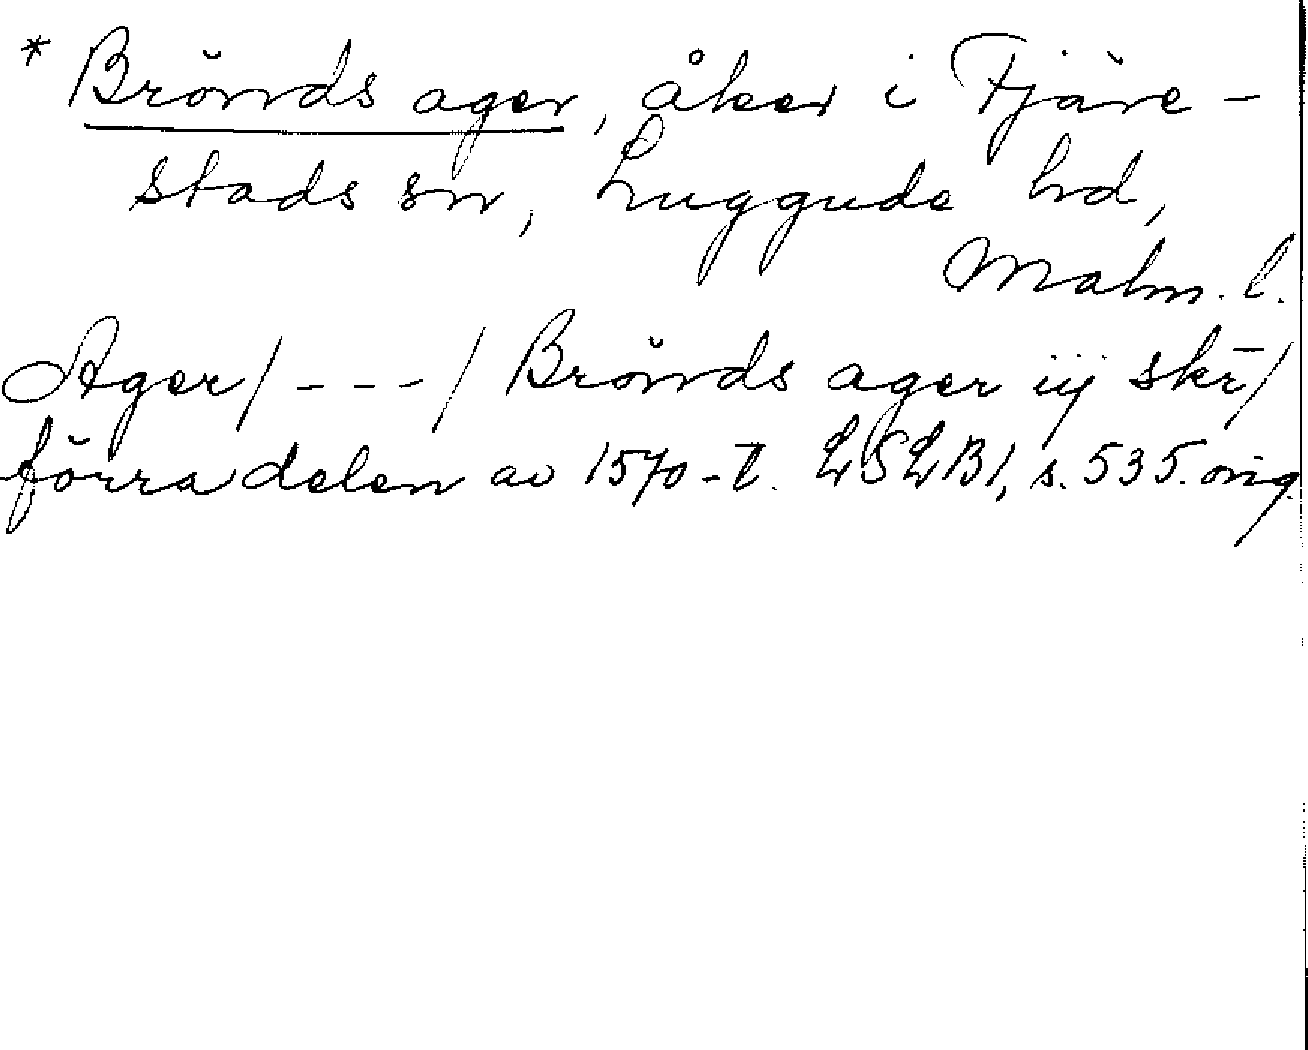 * Brönds ager, åker i Fjäre-
stads sn, Luggude hd,
Malm. l.
Ager / - - - / Brönds ager iij skr̄ /
förra delen av 1570-t. LSLB1, s. 535. orig.